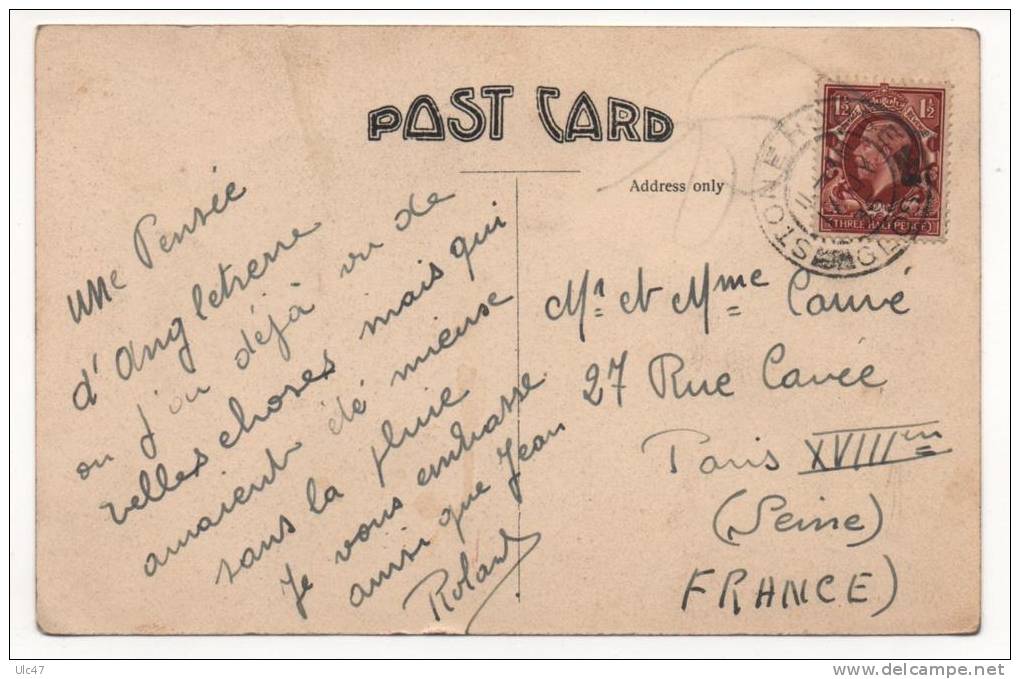 POST CARD
Address only
1½ 1½
(THREE HALFPENCE)
STONEH
une Pensée
d'angleterre
ou j'ai déjà vu de
belles choses mais qui
auraient été mieuse
sans la pluie
Je vous embrasse
ainsi que Jean
Roland
Mr et Mme Cauvé
27 Rue Cavée
Paris XVIIIem
(Seine)
FRANCE)
Ulc47
www.delcampe.net